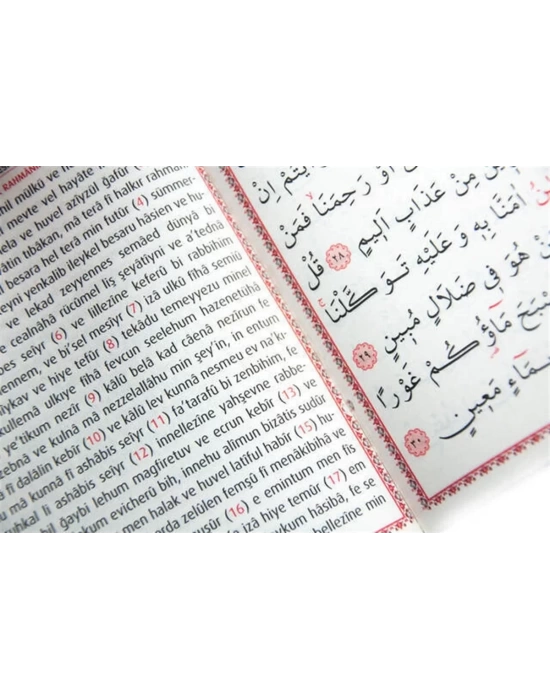 RAHMAN
mil mülkü ve
meyte vel hayâte
ve huvel azîyzül ğafûr
tıbâkan, mâ terâ fî halkır rahmâni
besara hel terâ min futûr (4) sümmer-
yenkalib ileykel besaru hâsien ve hu-
ve lekad zeyyennes semâed dünyâ bi
cealnâhâ rücûmel liş şeyâtîyni ve a'tednâ
seîyr (6) ve lillezîne keferû bi rabbihim
ve bi'sel mesîyr (7) izâ ülkû fîhâ semiû
ve hiye tefûr (8) tekâdu temeyyezu minel
küllemâ ulkıye fîhâ fevcun seelehum hazenetühâ
e'tikum nezîr (9) kâlû belâ kad câenâ nezîrun fe
zebnâ ve kulnâ mâ nezzelallâhu min şey'in, in entum
fî dalâlin kebîr (10) ve kâlû lev kunnâ nesmeu ev na'kı-
mâ kunnâ fî ashâbis seîyr (11) fa'terafû bi zenbihim, fe
uhkal li ashâbis seîyr (12) innellezîne yahşevne rabbe-
bil ğaybi lehum mağfiretuv ve ecrun kebîr (13) ve
kum evicherû bih, innehu alîmun bizâtis sudûr
men halak ve huvel latîful habîr (15) hu-
arda zelûlen femşû fî menâkibihâ ve
nuşûr (16) e emintum men fis
izâ hiye temûr (17) em
aykum hâsibâ, fe se
bellezîne min
اِنْ
اَوْ رَحِمَنَا فَمَنْ
مِنْ عَذَابٍ اَلِيمٍ ٢٨ قُلْ
اٰمَنَّا بِهٖ وَعَلَيْهِ تَوَكَّلْنَا
هُوَ فِي ضَلَالٍ مُبِينٍ ٢٩
مَاؤُكُمْ غَوْرًا
مَعِينٍ ٣٠